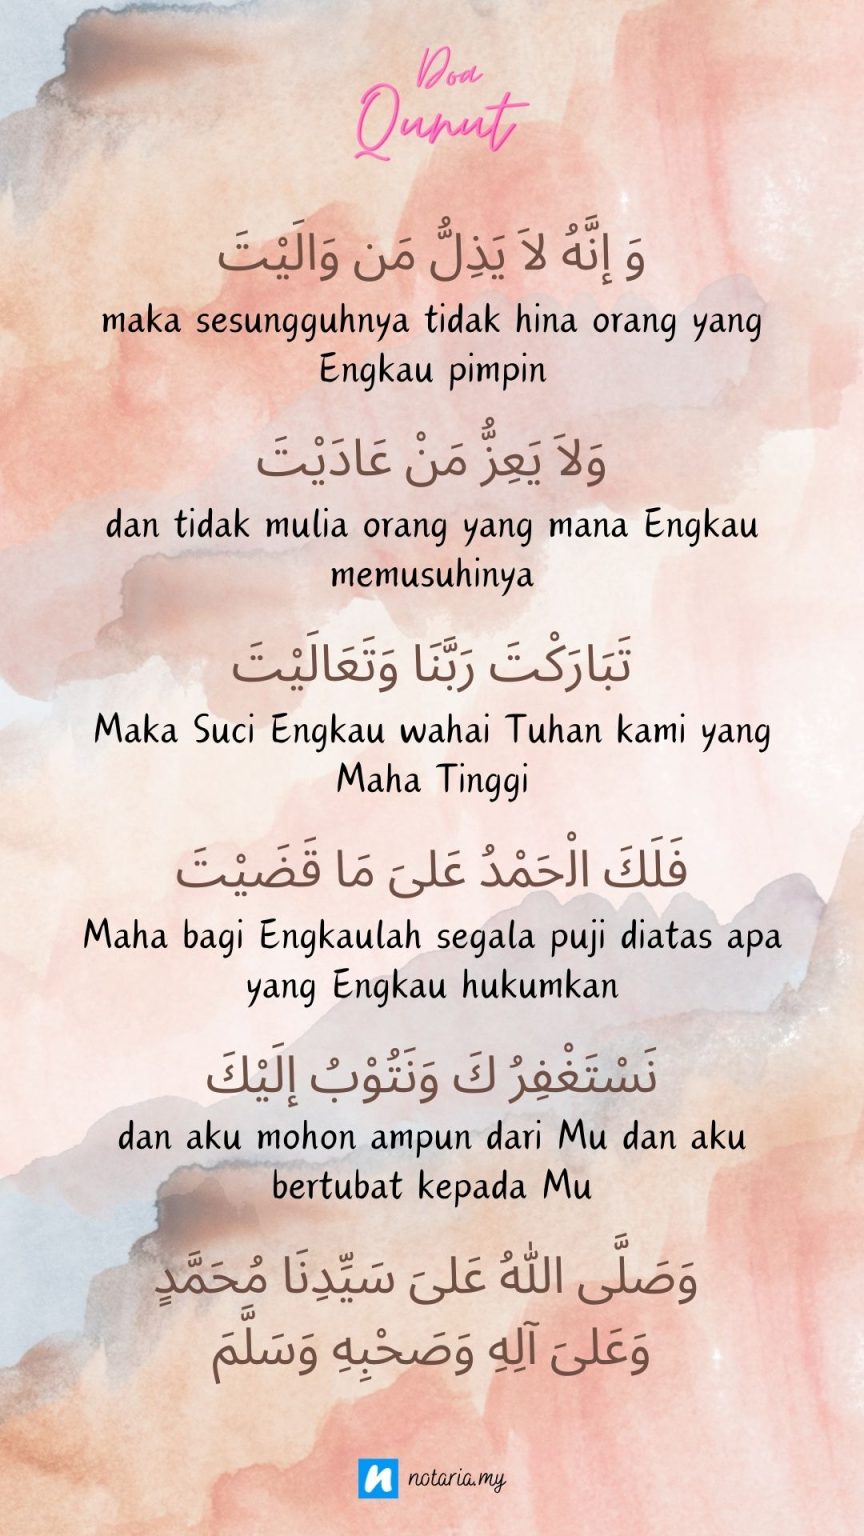 Doa
Qunut
وَ إنَّهُ لاَ يَذِلُّ مَن وَالَيْتَ
maka sesungguhnya tidak hina orang yang
Engkau pimpin
وَلاَ يَعِزُّ مَنْ عَادَيْتَ
dan tidak mulia orang yang mana Engkau
memusuhinya
تَبَارَكْتَ رَبَّنَا وَتَعَالَيْتَ
Maka Suci Engkau wahai Tuhan kami yang
Maha Tinggi
فَلَكَ الْحَمْدُ عَلىَ مَا قَضَيْتَ
Maha bagi Engkaulah segala puji diatas apa
yang Engkau hukumkan
نَسْتَغْفِرُ كَ وَنَتُوْبُ إلَيْكَ
dan aku mohon ampun dari Mu dan aku
bertubat kepada Mu
وَصَلَّى اللهُ عَلىَ سَيِّدِنَا مُحَمَّدٍ
وَعَلىَ آلِهِ وَصَحْبِهِ وَسَلَّمَ
n notaria.my